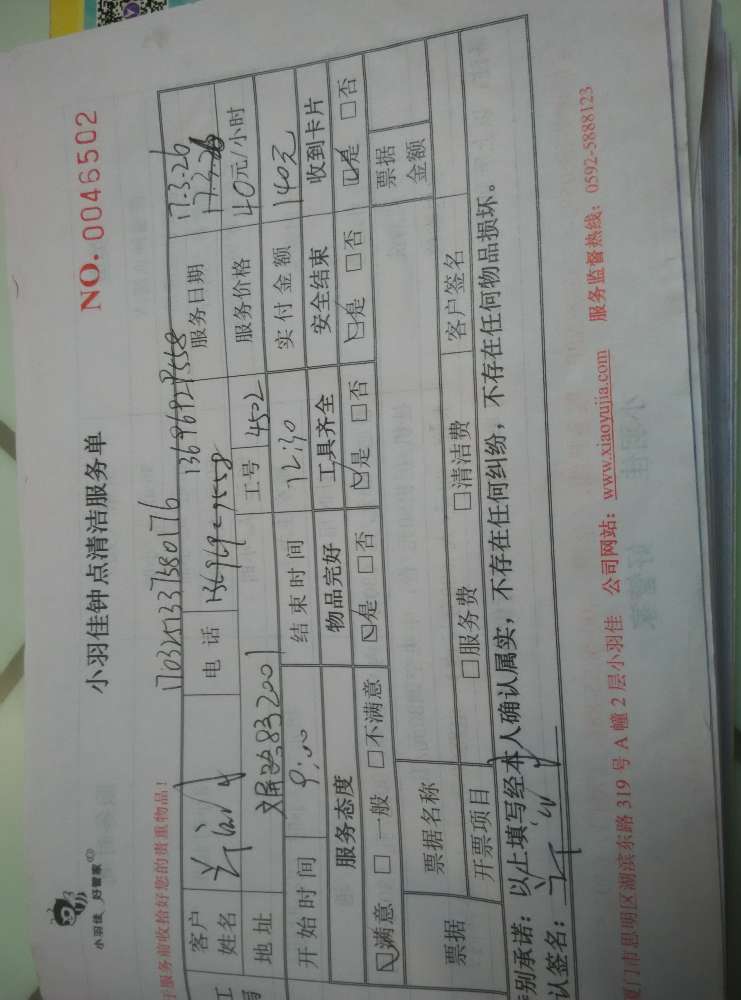 小羽佳 好管家
小羽佳钟点清洁服务单
NO. 0046502
于服务前收拾好您的贵重物品！
客户姓名
电话
服务日期 17.3.26
地址
工号 4502
服务价格 40元/小时
开始时间 9:00
结束时间 12:30
实付金额 140元
服务态度 物品完好 工具齐全 安全结束 收到卡片
☑满意 □一般 □不满意 ☑是 □否 ☑是 □否 ☑是 □否 ☑是 □否
票据 票据名称 票据金额
开票项目 □服务费 □清洁费 客户签名
别承诺：以上填写经本人确认属实，不存在任何纠纷，不存在任何物品损坏。
认签名：
厦门市思明区湖滨东路 319 号 A 幢 2 层小羽佳 公司网站：www.xiaoyujia.com 服务监督热线：0592-5888123